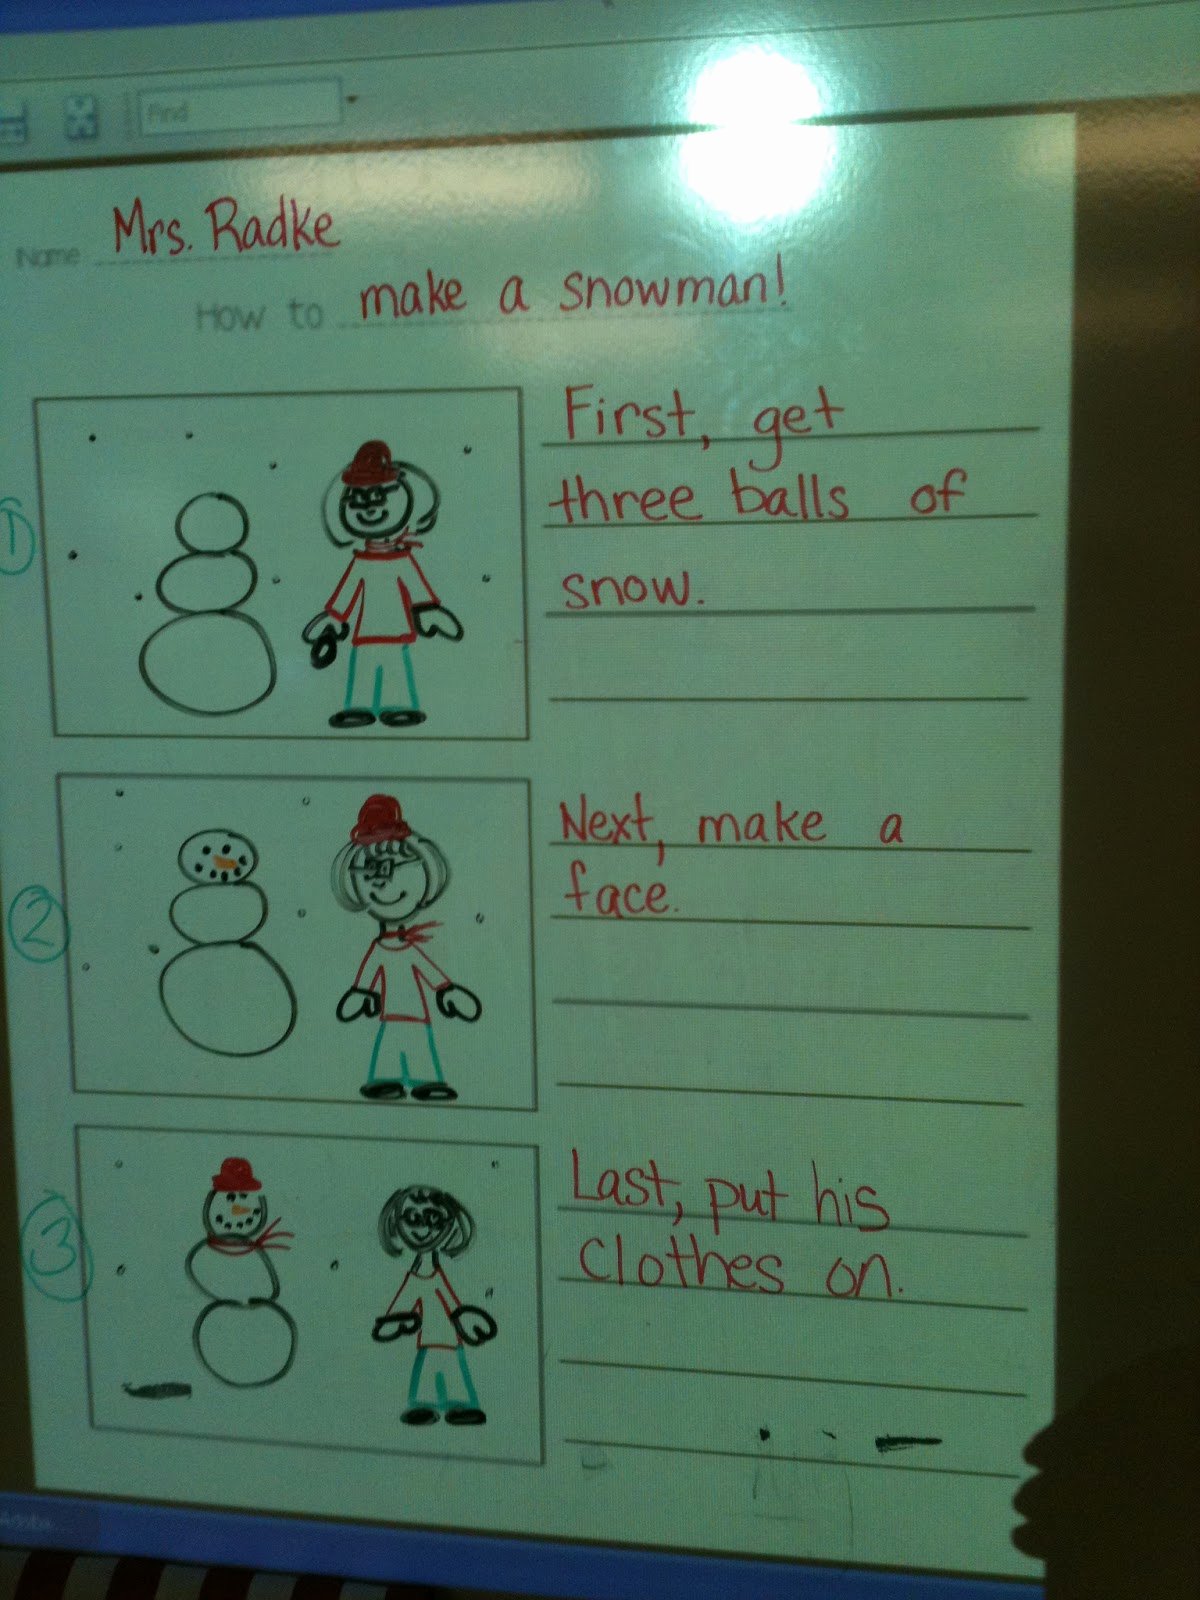 Find
Name Mrs. Radke
How to make a snowman!
1
First, get
three balls of
snow.
2
Next, make a
face.
3
Last, put his
clothes on.